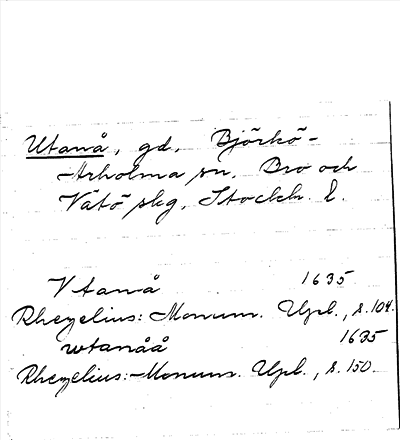 Utanå, gd, Björkö-
Arholma sn, Bro och
Vätö skg, Stockh. l.
Vtanå 1635
Rhezelius: Monum. Upl., s. 104.
wtanåå 1635
Rhezelius: Monum. Upl., s. 150.